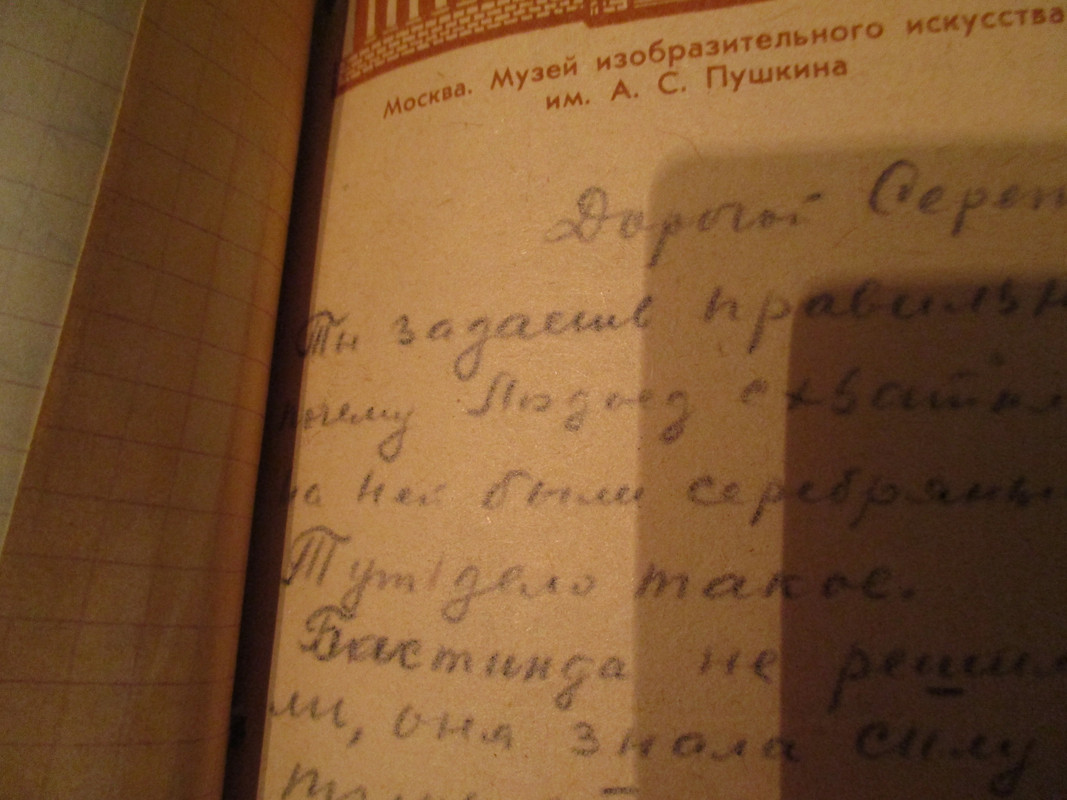 Москва. Музей изобразительного искусства
им. А. С. Пушкина
Дорогой Сереж
Ты задаешь правильн
почему Людоед схватил
на ней были серебряны
Тут дело такое.
Бастинда не решил
ли, она знала силу